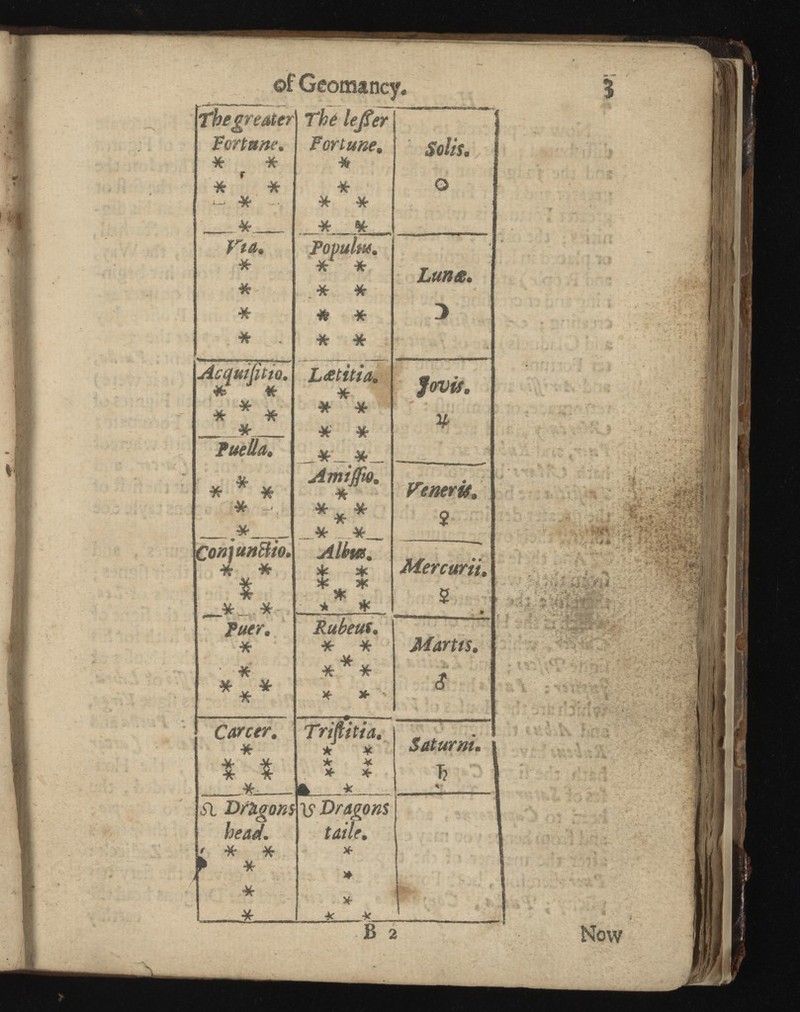 of Geomancy. 3
The greater Fortune. The leſſer Fortune. Solis.
* * *
* * * ☉
* * *
* * *
Via. Populus. Lunæ.
* * *
* * * ☽
* * *
* * *
Acquiſitio. Lætitia. Jovis.
* * *
* * * ♃
* * * *
* * *
Puella. Amiſſio. Veneris.
* *
* * * * ♀
* *
* * *
Conjunctio. Albus. Mercurii.
* * * *
* * * ☿
* *
* * * *
Puer. Rubeus. Martis.
* * *
* * ♂
* * * *
* * *
Carcer. Triſtitia. Saturni.
* * *
* * * * ♄
* * * *
* *
☊ Dragons head. ♑ Dragons taile.
* * *
* *
* *
* * *
B 2 Now